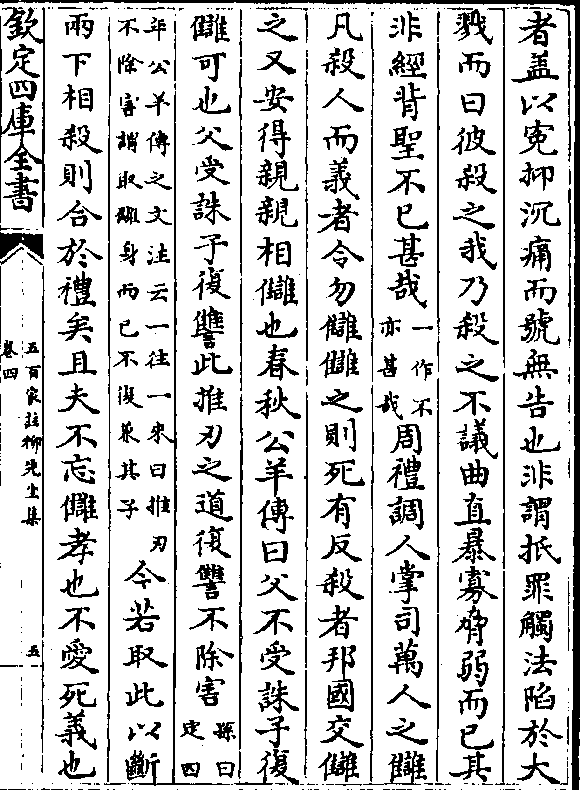 者蓋以冤抑沉痛而號無告也非謂抵罪觸法陷於大
戮而曰彼殺之我乃殺之不議曲直暴寡脅弱而已其
非經背聖不已甚哉一作不亦甚哉周禮調人掌司萬人之讎
凡殺人而義者令勿讎讎之則死有反殺者邦國交讎
之又安得親親相讎也春秋公羊傳曰父不受誅子復
讎可也父受誅子復讐此推刃之道復讐不除害孫曰定四
年公羊傳之文注云一往一來曰推刃不除害謂取讎身而已不復兼其子今若取此以斷
兩下相殺則合於禮矣且夫不忘讎孝也不愛死義也
欽定四庫全書
五百家註柳先生集
卷四
五